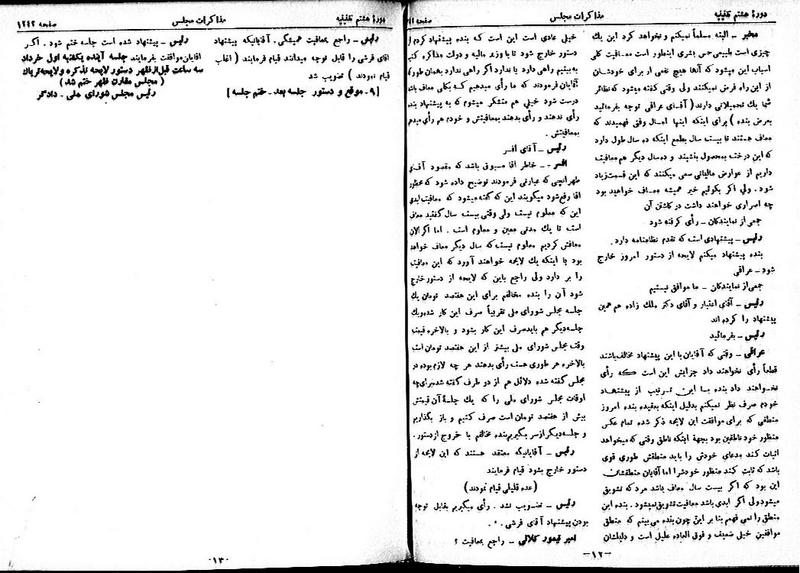 دورهٔ هشتم تقنینیه
مذاکرات مجلس
صفحه
مخبر – البته مسلماً نمیکنم و نخواهد کرد این یك
چیزی است طبیعی حس بشری اینطور است معافیت کلی
اسباب این میشود که آنها هیچ نفعی از برای خودشان
از این راه فرض نمیکنند ولی وقتی گفته میشود که نظائر
شما یك تحمیلاتی دارند (آقای عراقی توجه بفرمائید
بعرض بنده) برای اینکه اینها امسال وقتی فهمیدند که
معاف هستند تا بیست سال بطمع اینکه ده سال طول دارد
که این درخت بمحصول بنشیند و ده سال دیگر هم معافیت
داریم از عوارض مالیاتی سعی میکنند که این قسمت زیاد
شود . ولی اگر بگوئیم خیر همیشه معاف خواهید بود
چه اصراری خواهند داشت در کاشتن آن
جمعی از نمایندگان – رأی گرفته شود
رئیس – پیشنهادی است که تقدم نظامنامه دارد .
بنده پیشنهاد میکنم لایحه از دستور امروز خارج
شود – عراقی
جمعی از نمایندگان – ما موافق نیستیم
رئیس – آقای اعتبار و آقای دکتر ملك زاده هم همین
پیشنهاد را کرده اند
رئیس – بفرمائید
عراقی – وقتی که آقایان با این پیشنهاد مخالف باشند
قطعاً رأی نخواهند داد جزایش این است که رأی
نخواهند داد بنده بنا باین ترتیب از پیشنهاد
خودم صرف نظر نمیکنم بدلیل اینکه بعقیده بنده امروز
منطقی که برای موافقت این لایحه ذکر شده تمام عکس
منظور خود ناطقین بود بجهة اینکه ناطق وقتی که میخواهد
اثبات کند مدعای خودش را باید منطقش طوری قوی
باشد که ثابت کند منظور خودش را اما آقایان منطقشان
این بود که اگر بیست سال معاف باشد مردم تشویق
میشود ولی اگر ابدی باشد معافیت تشویق نمیشود . بنده این
منطق را نمی فهمم بنا بر این چون بنده می بینم که منطق
موافقین خیلی ضعیف و فوق العاده علیل است و دلیلشان
–۱۲–
خیلی عادی است این است که بنده پیشنهاد کردم از
دستور خارج شود تا با وزیر مالیه و دولت مذاکره کنیم
به بینیم راهی دارد یا ندارد اگر راهی ندارد بهمان طور
آقایان فرمودند که ما رأی میدهیم که بکلی معاف باشد
درست شود خیلی هم متشکر میشوم که به پیشنهاد بنده
رأی ندهند و رأی بدهند بمعافیتش و خودم هم رأی میدهم
بمعافیتش .
رئیس – آقای افسر
افسر – خاطر آقا مسبوق باشد که مقصود آقای
طهرانچی که عبارتی فرمودند توضیح داده شود که محظور
آقا رفع شود میگویند این که گفته میشود که معافیت ابدی
این که معلوم نیست ولی وقتی بیست سال گفتید معاف
است تا یك مدتی معین و معلوم است . اما اگر الان
معافش کردیم معلوم نیست که سال دیگر معاف خواهد
بود یا اینکه یك لایحه خواهند آورد که این معافیت
را بر دارد ولی راجع باین که لایحه از دستور خارج
شود آن را بنده مخالفم برای این هفتصد تومان یك
جلسه مجلس شورای ملی تقریباً صرف این کار شده و یك
جلسه دیگر هم باید صرف این کار بشود و بالاخره قیمت
وقت مجلس شورای ملی بیشتر از این هفتصد تومان است
بالاخره هر طوری هست رأی بدهند هر چه لازم بوده در
مجلس گفته شده دلائل هم از دو طرف گفته شد برای چه
اوقات مجلس شورای ملی را که یك جلسهٔ آن قیمتش
بیش از هفتصد تومان است صرف کنیم و باز بگذاریم
و جلسه دیگر از سر بگیریم بنده مخالفم با خروج از دستور .
رئیس – آقایانیکه معتقد هستند که این لایحه از
دستور خارج بشود قیام فرمایند
(عده قلیلی قیام نمودند)
رئیس – تصویب نشد . رأی میگیریم بقابل توجه
بودن پیشنهاد آقای فرشی .
امیر تیمور کلالی – راجع بمعافیت ؟
دورهٔ هشتم تقنینیه
مذاکرات مجلس
صفحه ۱۲۱۲
رئیس – راجع بمعافیت همیشگی . آقایانیکه پیشنهاد
آقای فرشی را قابل توجه میدانند قیام فرمایند (اغلب
قیام نمودند) تصویب شد
[۹ – موقع و دستور جلسه بعد – ختم جلسه]
رئیس – پیشنهاد شده است جلسه ختم شود . اگر
آقایان موافقت بفرمایند جلسه آینده یکشنبه اول خرداد
سه ساعت قبل از ظهر دستور لایحه تذکره و لایحه تریاك
(مجلس مقارن ظهر ختم شد)
رئیس مجلس شورای ملی – دادگر
–۱۳۰